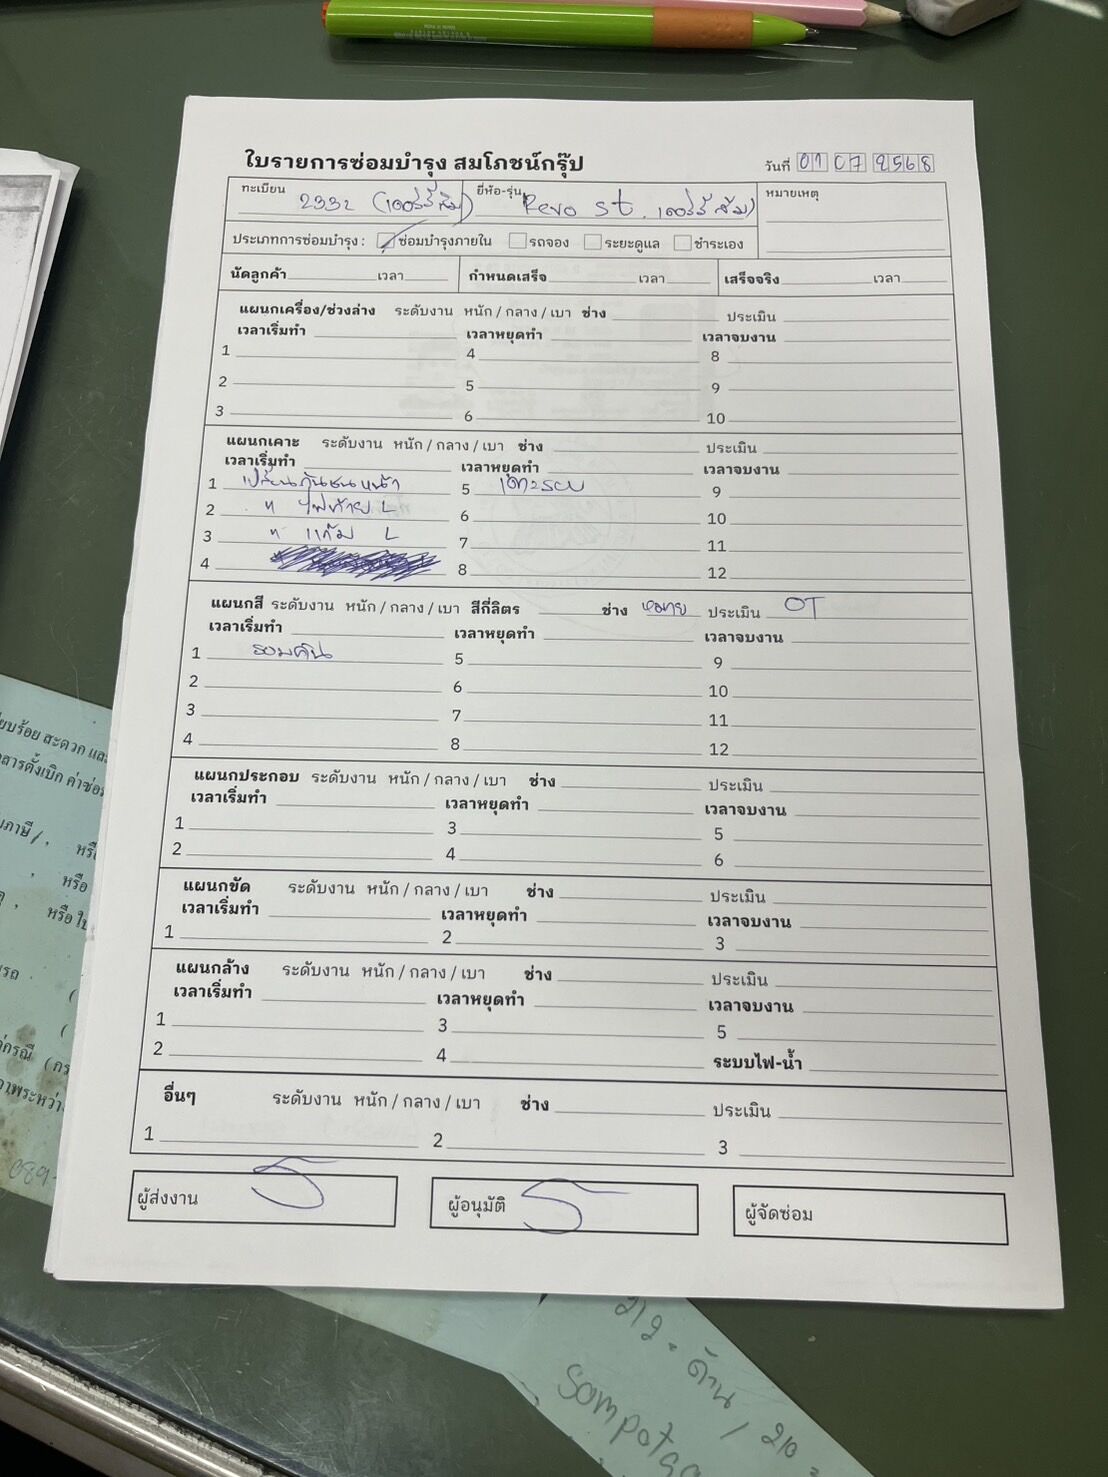 ใบรายการซ่อมบำรุง สมโภชน์กรุ๊ป
วันที่ 01 07 2568
ทะเบียน 2332
ยี่ห้อ-รุ่น Revo st.
หมายเหตุ
ประเภทการซ่อมบำรุง : ซ่อมบำรุงภายใน รถจอง ระยะดูแล ชำระเอง
นัดลูกค้า เวลา กำหนดเสร็จ เวลา เสร็จจริง เวลา
แผนกเครื่อง/ช่วงล่าง ระดับงาน หนัก / กลาง / เบา ช่าง ประเมิน
เวลาเริ่มทำ เวลาหยุดทำ เวลาจบงาน
1 4 8
2 5 9
3 6 10
แผนกเคาะ ระดับงาน หนัก / กลาง / เบา ช่าง ประเมิน
เวลาเริ่มทำ เวลาหยุดทำ เวลาจบงาน
1 เปลี่ยนกันชนหน้า 5 เคาะรอบ 9
2 " ไฟท้าย L 6 10
3 " แก้ม L 7 11
4 8 12
แผนกสี ระดับงาน หนัก / กลาง / เบา สีกี่ลิตร ช่าง ประเมิน OT
เวลาเริ่มทำ เวลาหยุดทำ เวลาจบงาน
1 รอบคัน 5 9
2 6 10
3 7 11
4 8 12
แผนกประกอบ ระดับงาน หนัก / กลาง / เบา ช่าง ประเมิน
เวลาเริ่มทำ เวลาหยุดทำ เวลาจบงาน
1 3 5
2 4 6
แผนกขัด ระดับงาน หนัก / กลาง / เบา ช่าง ประเมิน
เวลาเริ่มทำ เวลาหยุดทำ เวลาจบงาน
1 2 3
แผนกล้าง ระดับงาน หนัก / กลาง / เบา ช่าง ประเมิน
เวลาเริ่มทำ เวลาหยุดทำ เวลาจบงาน
1 3 5
2 4 ระบบไฟ-น้ำ
อื่นๆ ระดับงาน หนัก / กลาง / เบา ช่าง ประเมิน
1 2 3
ผู้ส่งงาน
ผู้อนุมัติ
ผู้จัดซ่อม
212 = ด้าน / 210